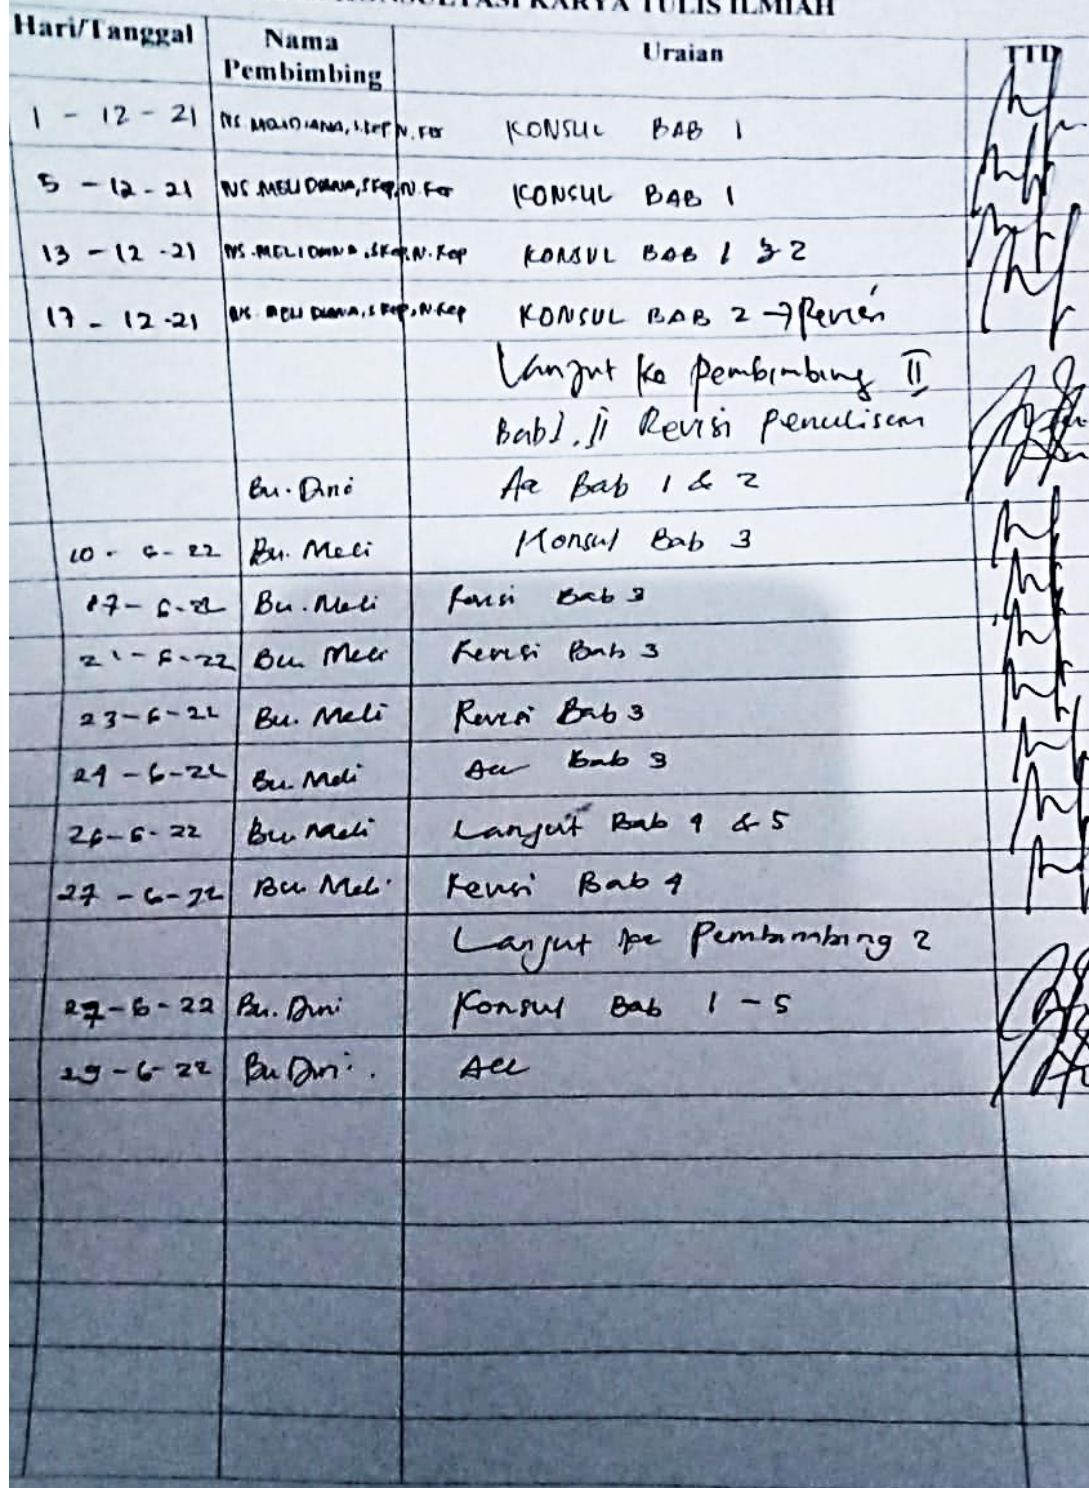 KONSULTASI KARYA TULIS ILMIAH
Hari/Tanggal Nama Pembimbing Uraian TTD
1 - 12 - 21 NS. MELIDIANA, S.Kep, N. Kep KONSUL BAB 1
5 - 12 - 21 NS. MELI DIANA, S.Kep, N. Kep KONSUL BAB 1
13 - 12 - 21 NS. MELI DIANA, S.Kep, N. Kep KONSUL BAB 1 & 2
17 - 12 - 21 NS. MELI DIANA, S.Kep, N. Kep KONSUL BAB 2 → Revisi
Lanjut ke pembimbing II
Bab I, II Revisi penulisan
Bu. Dini Acc Bab 1 & 2
10 - 6 - 22 Bu. Meli Konsul Bab 3
17 - 6 - 22 Bu. Meli Revisi Bab 3
21 - 6 - 22 Bu. Meli Revisi Bab 3
23 - 6 - 22 Bu. Meli Revisi Bab 3
24 - 6 - 22 Bu. Meli Acc Bab 3
26 - 6 - 22 Bu. Meli Lanjut Bab 4 & 5
27 - 6 - 22 Bu. Meli Revisi Bab 4
Lanjut ke Pembimbing 2
27 - 6 - 22 Bu. Dini Konsul Bab 1 - 5
29 - 6 - 22 Bu Dini Acc